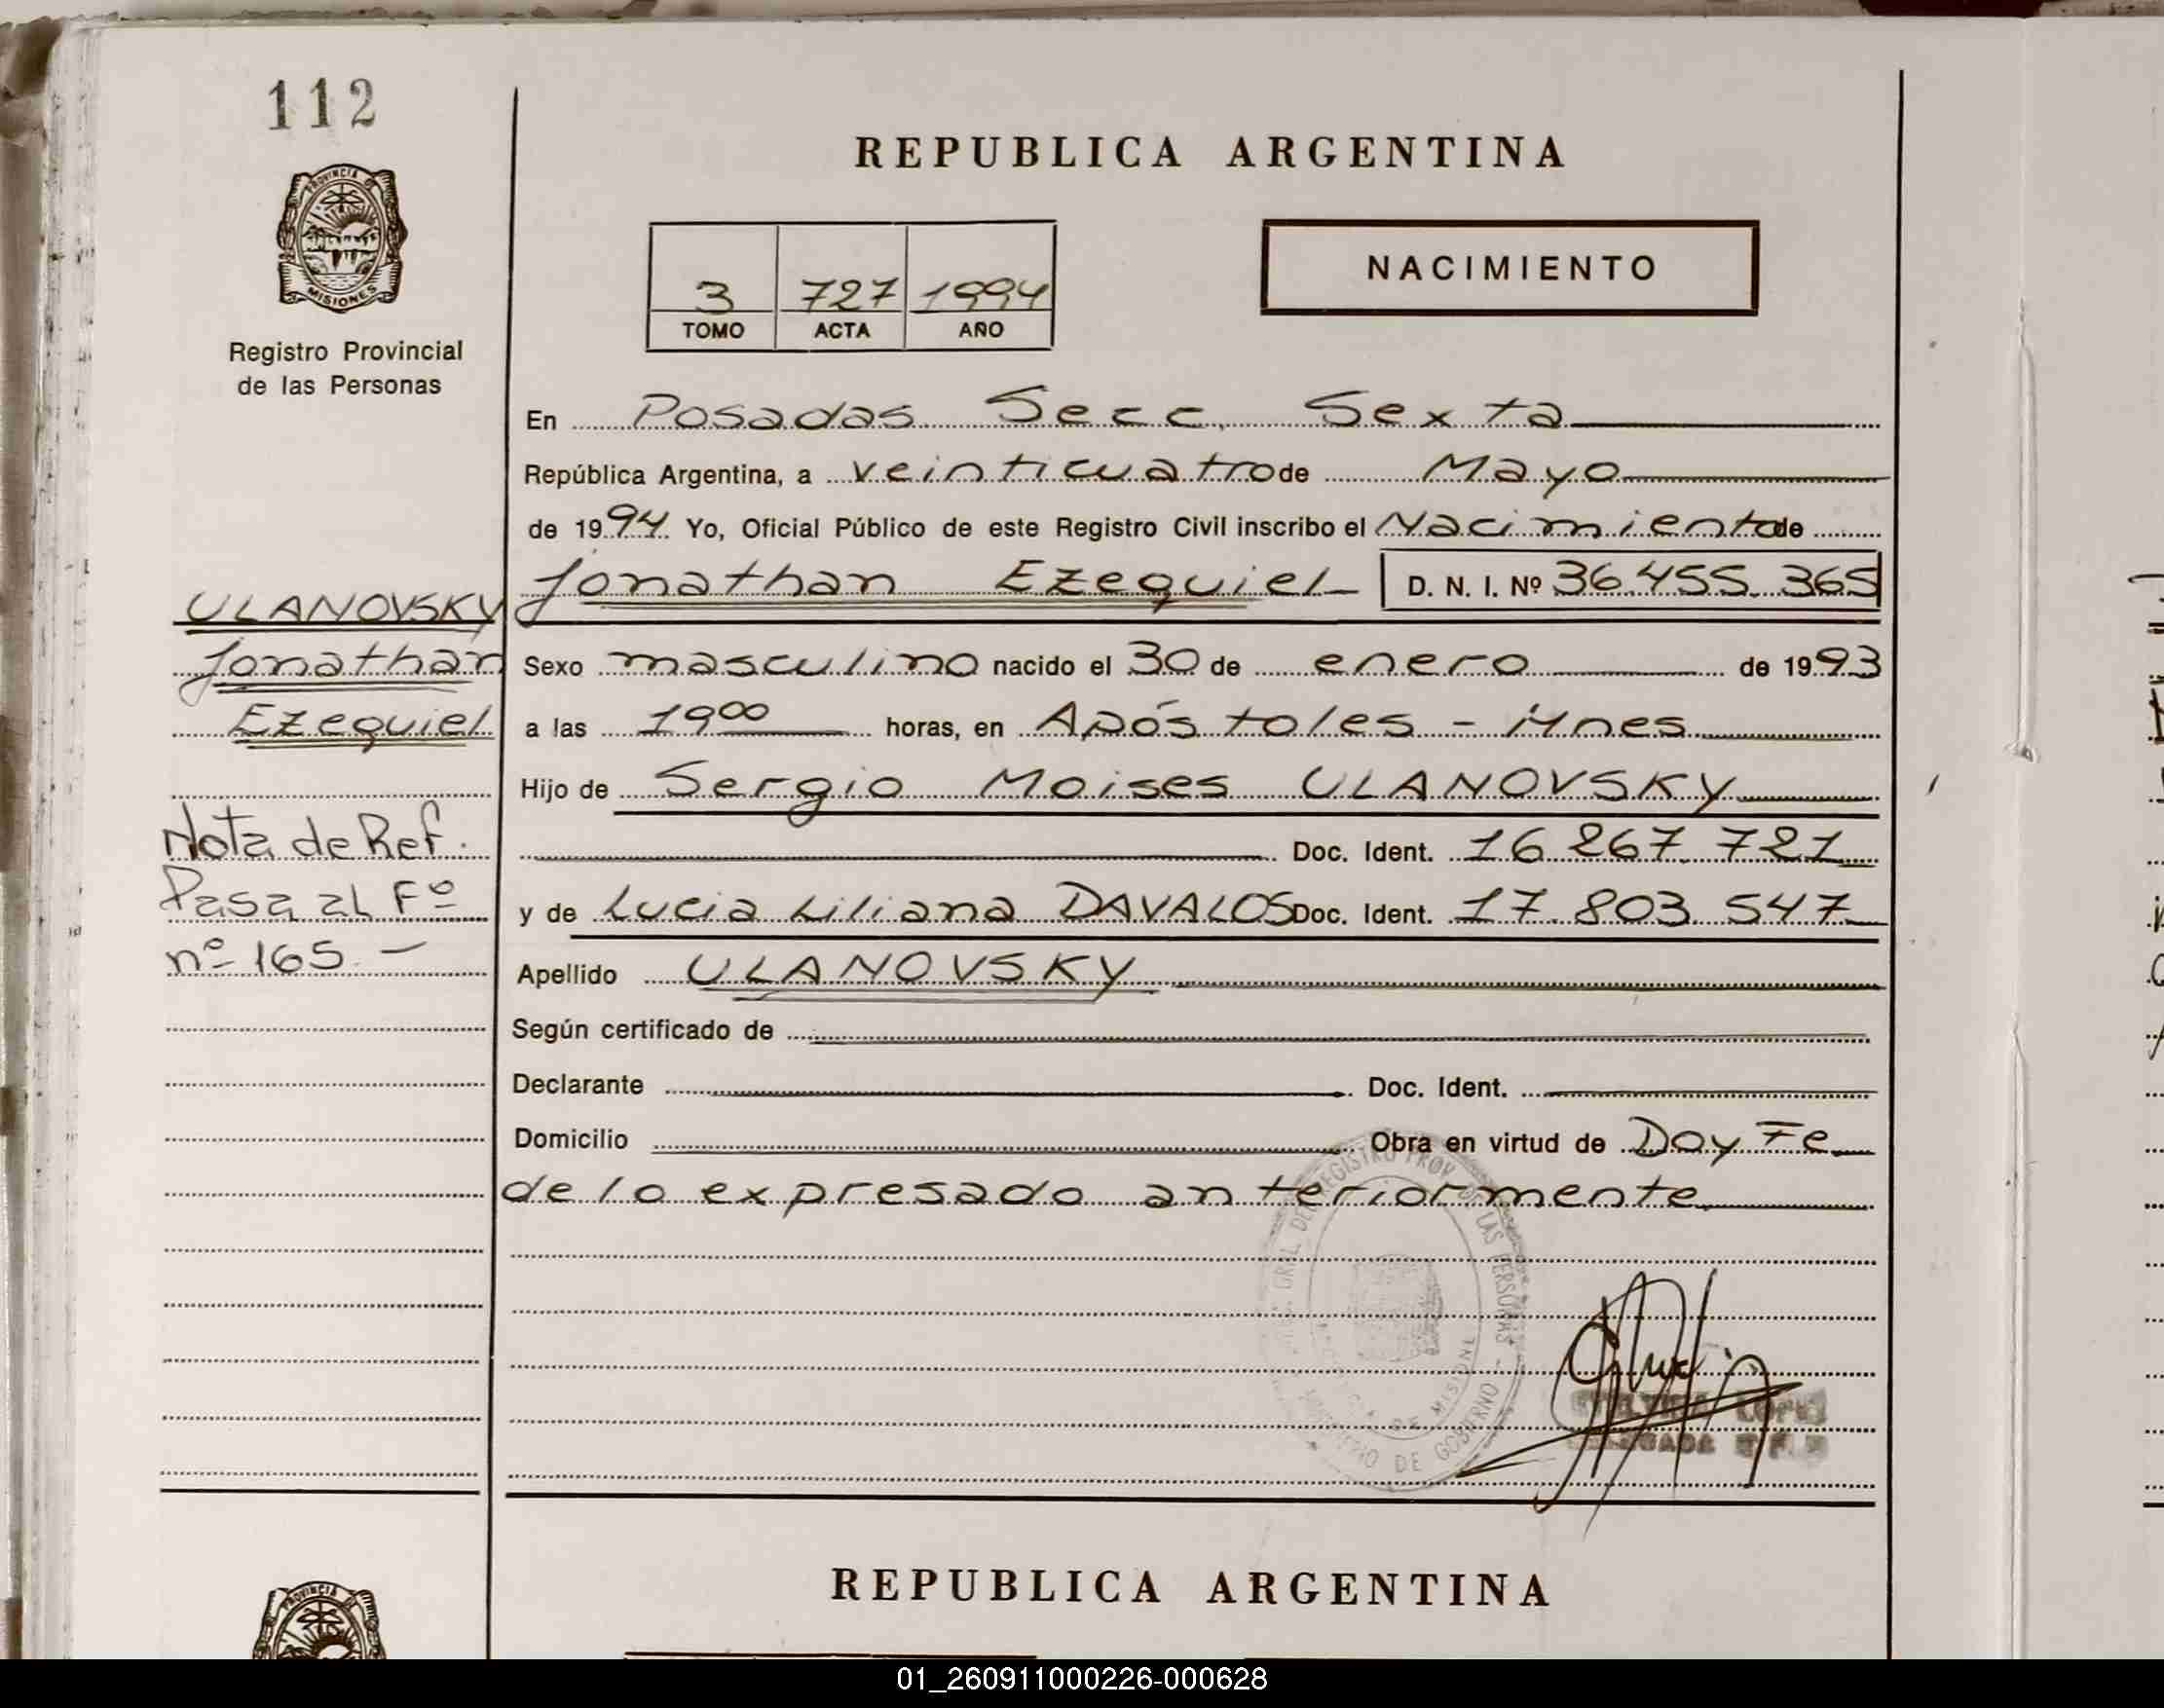 112
PROVINCIA DE
MISIONES
Registro Provincial
de las Personas
REPUBLICA ARGENTINA
3 727 1994
TOMO ACTA AÑO
NACIMIENTO
En Posadas Secc. Sexta
República Argentina, a veinticuatro de Mayo
de 1994 Yo, Oficial Público de este Registro Civil inscribo el Nacimiento de
Jonathan Ezequiel D. N. I. Nº 36.455.365
ULANOVSKY
Jonathan
Ezequiel
Nota de Ref.
Pasa al Fº
nº 165.-
Sexo masculino nacido el 30 de enero de 1993
a las 19⁰⁰ horas, en Apóstoles - Mnes
Hijo de Sergio Moises ULANOVSKY
Doc. Ident. 16.267.721
y de Lucia Liliana DAVALOS Doc. Ident. 17.803.547
Apellido ULANOVSKY
Según certificado de
Declarante Doc. Ident.
Domicilio Obra en virtud de Doy Fe
de lo expresado anteriormente
REGISTRO PROV. DE LAS PERSONAS
DE MISIONE
DE GOBIERNO
REPUBLICA ARGENTINA
PROVINCIA
01_260911000226-000628